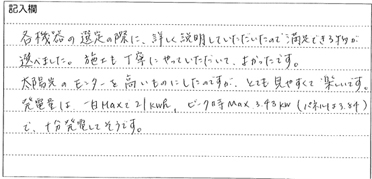 記入欄
各機器の選定の際に、詳しく説明していただいたので満足できる物が
選べました。施工も丁寧にやっていただいて、よかったです。
太陽光のモニターを高いものにしたのですが、とても見やすくて楽しいです。
発電量は一日Maxで21kwh、ピーク時Max 3.43kw (パネルは3.84)
で、十分発電してそうです。